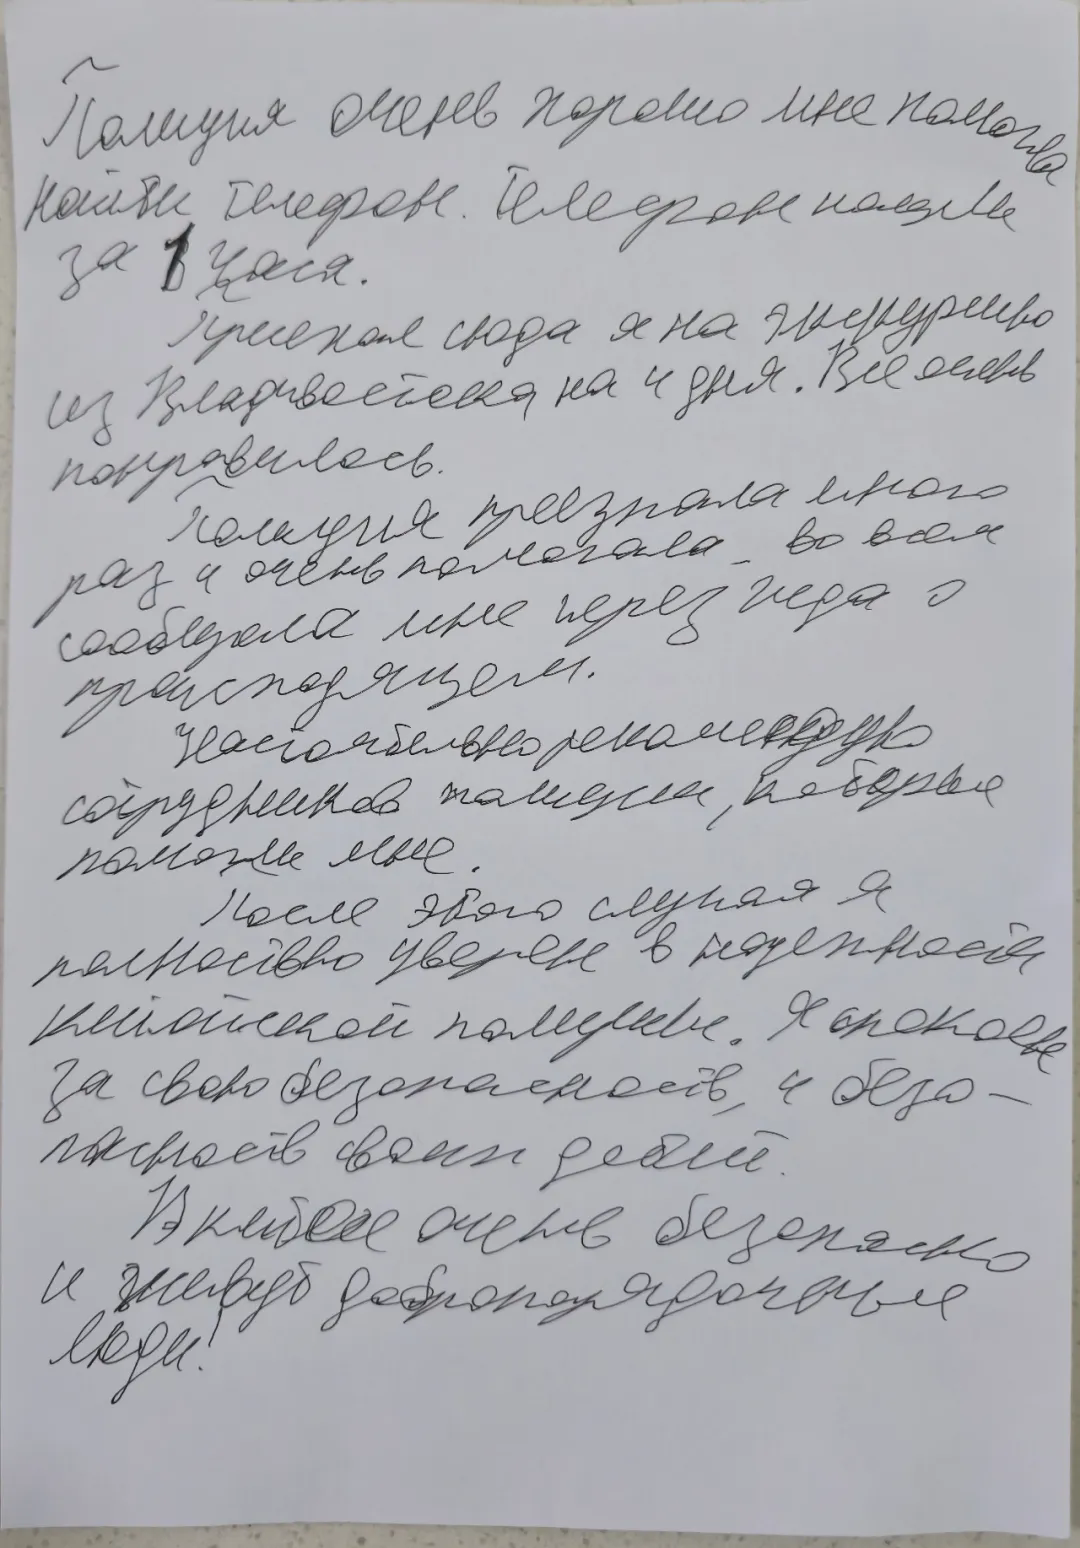 Полиция очень хорошо мне помогла
найти телефон. Телефон нашли
за 1 часа.
Приехал сюда я на экскурсию
из Владивостока на 4 дня. Все очень
понравилось.
Полиция приезжала много
раз и очень помогала во всем
сообщала мне через гида о
происходящем.
Настоятельно рекомендую
сотрудников полиции, которые
помогли мне.
После этого случая я
полностью уверен в надежности
китайской полиции. Я спокоен
за свою безопасность, и безо-
пасность своих детей.
В китае очень безопасно
и живут добропорядочные
люди!